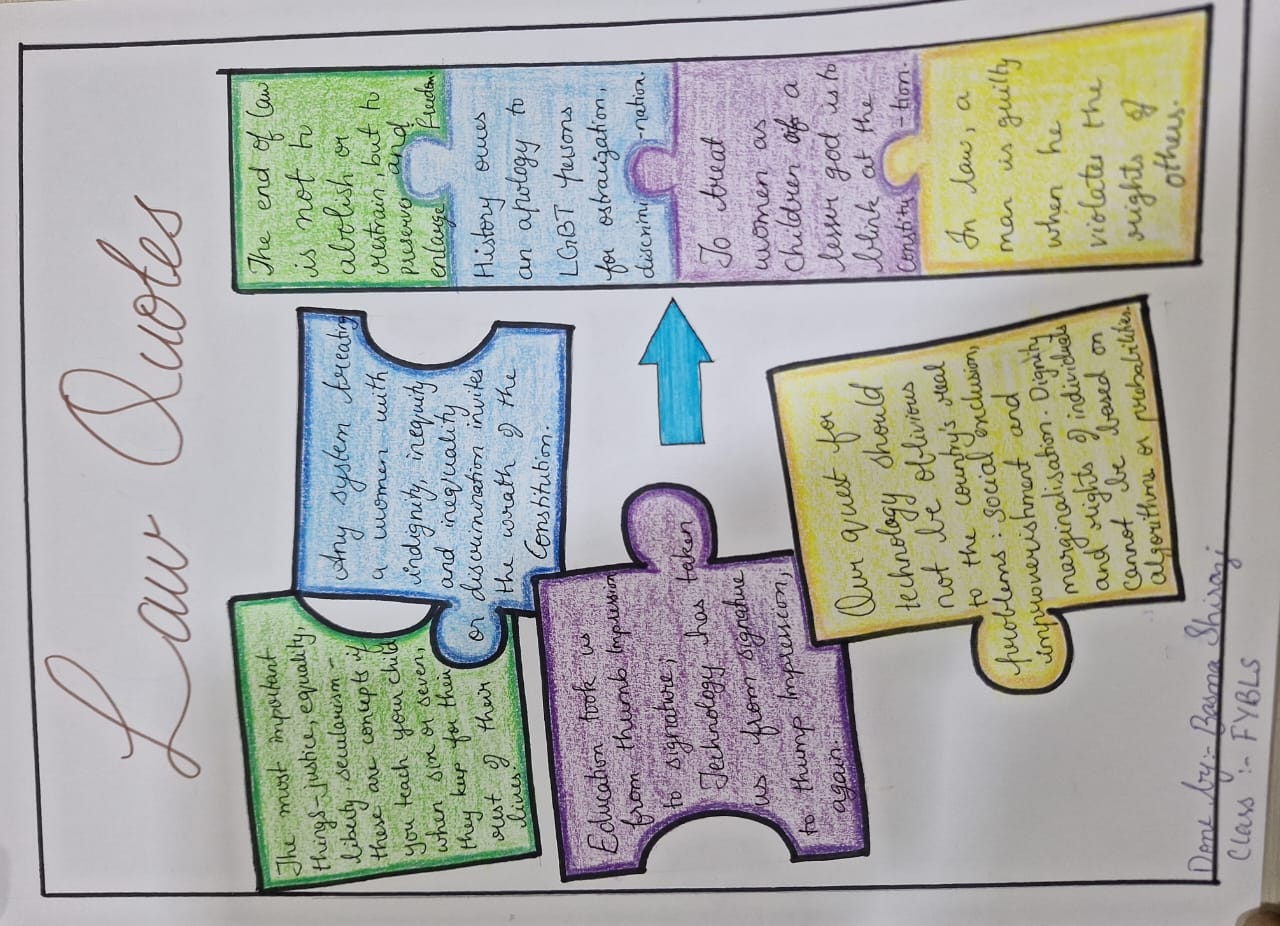 Law Quotes
The most important
things-justice, equality,
liberty, secularism-
these are concepts if
you teach your child
when six or seven,
they keep for their
rest of their
lives.
Any system treating
a women with
indignity, inequity
and inequality
or discrimination invites
the wrath of the
Constitution
Education took us
from thumb Impression
to signature;
Technology has taken
us from signature
to thump Impression,
again.
Our quest for
technology should
not be oblivious
to the country's real
problems: social exclusion,
impoverishment and
marginalisation. Dignity
and rights of individuals
Cannot be based on
algorithms or probabilities.
The end of law
is not to
abolish or
restrain but to
preserve and
enlarge freedom.
History owes
an apology to
LGBT persons
for ostraigation,
discrimi-nation.
To treat
women as
Children of a
lesser god is to
blink at the
Constitu-tion.
In law, a
man is guilty
when he
violates the
rights of
others.
Done by:- Basma Shiraj
Class :- FYBLS